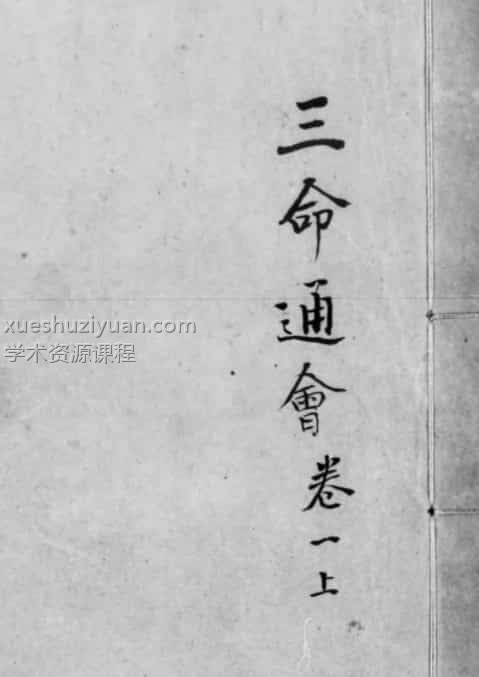 三命通會卷一上
xueshuziyuan.com
学术资源课程